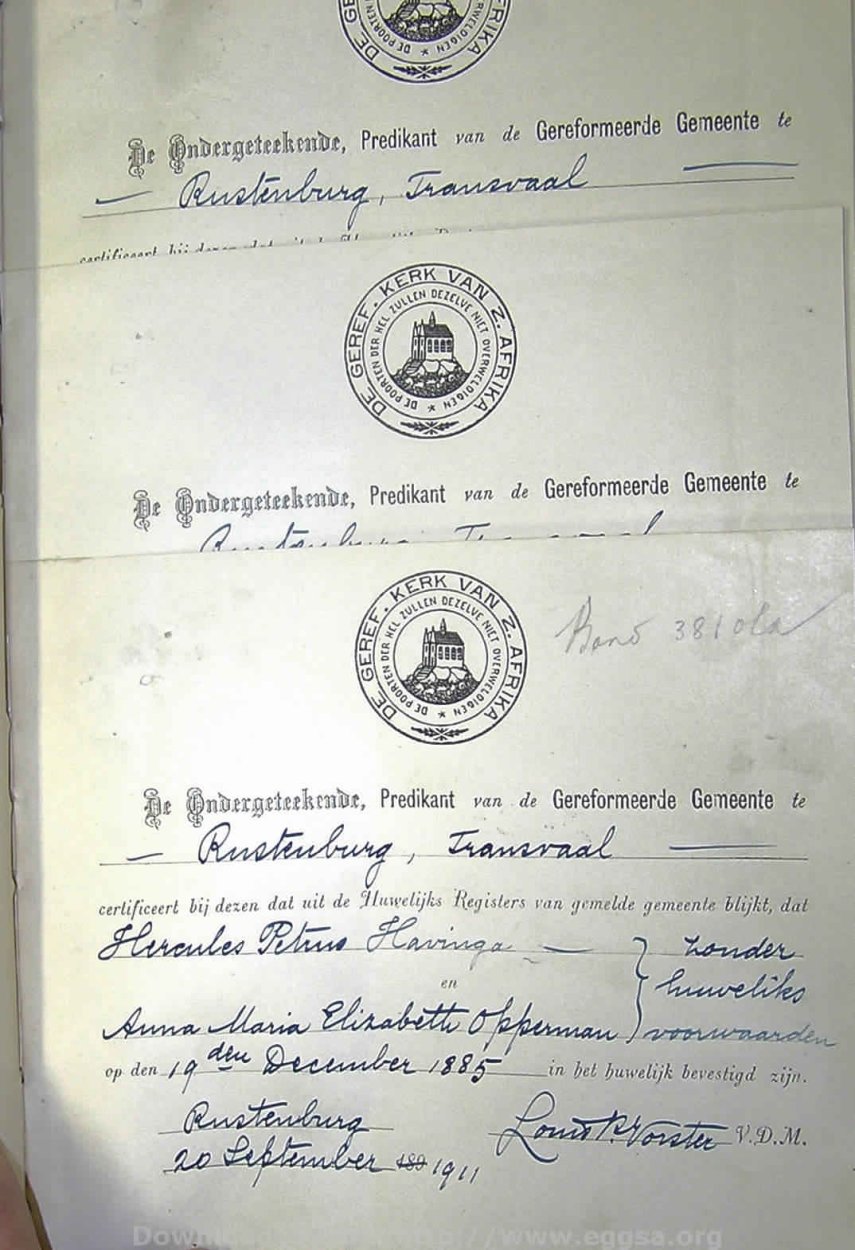 DE GEREF. KERK VAN Z. AFRIKA
DE POORTEN DER HEL ZULLEN DEZELVE NIET OVERWELDIGEN
De Ondergeteekende, Predikant van de Gereformeerde Gemeente te
— Rustenburg, Transvaal —
certificeert bij dezen dat uit de
DE GEREF. KERK VAN Z. AFRIKA
DE POORTEN DER HEL ZULLEN DEZELVE NIET OVERWELDIGEN *
De Ondergeteekende, Predikant van de Gereformeerde Gemeente te
Rustenburg, Transvaal
DE GEREF. KERK VAN Z. AFRIKA
DE POORTEN DER HEL ZULLEN DEZELVE NIET OVERWELDIGEN *
De Ondergeteekende, Predikant van de Gereformeerde Gemeente te
— Rustenburg, Transvaal —
certificeert bij dezen dat uit de Huwelijks Registers van gemelde gemeente blijkt, dat
Hercules Petrus Havinga — } zonder
en huweliks
Anna Maria Elizabeth Opperman voorwaarden
op den 19den December 1885 in het huwelijk bevestigd zijn.
Rustenburg Louis P. Vorster V.D.M.
20 September 189 1911
http://www.eggsa.org